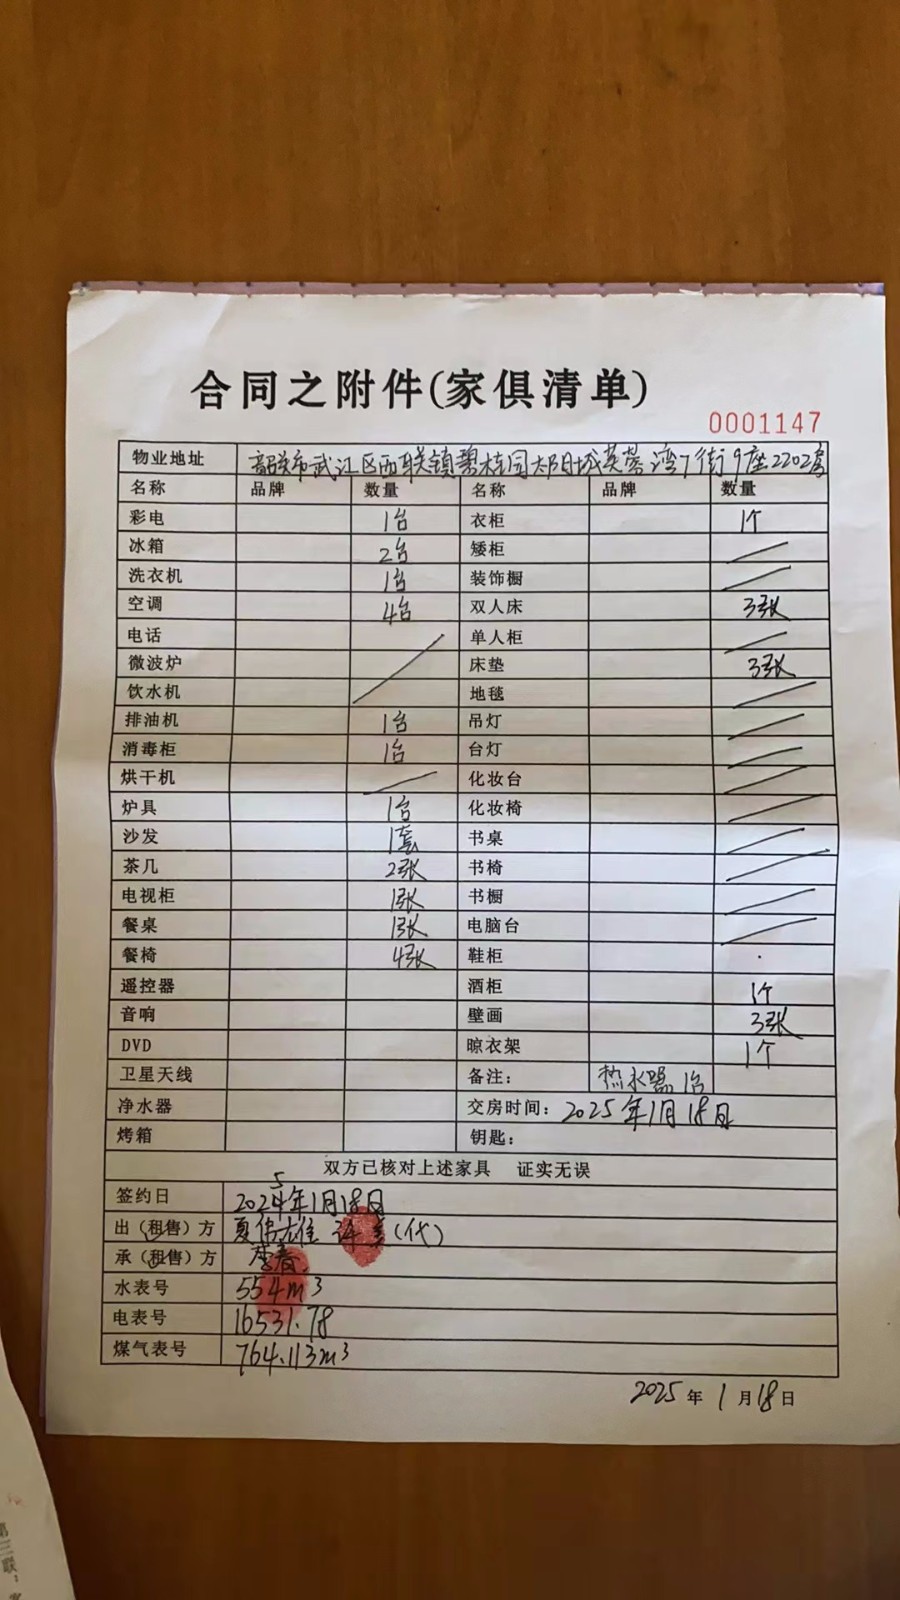 合同之附件(家俱清单)
0001147
物业地址 韶关市武江区西联镇碧桂园太阳城芙蓉湾7街9座2202房
名称 品牌 数量 名称 品牌 数量
彩电 1台 衣柜 1个
冰箱 2台 矮柜
洗衣机 1台 装饰橱
空调 4台 双人床 3张
电话 单人柜
微波炉 床垫 3张
饮水机 地毯
排油机 1台 吊灯
消毒柜 1台 台灯
烘干机 化妆台
炉具 1台 化妆椅
沙发 1套 书桌
茶几 2张 书椅
电视柜 1张 书橱
餐桌 1张 电脑台
餐椅 4张 鞋柜
遥控器 酒柜 1个
音响 壁画 3张
DVD 晾衣架 1个
卫星天线 备注： 热水器 1台
净水器 交房时间： 2025年1月18日
烤箱 钥匙：
双方已核对上述家具 证实无误
签约日 2025年1月18日
出（租售）方 夏伟雄 (代)
承（租售）方 李春
水表号 554m3
电表号 16531.78
煤气表号 764.113m3
2025年1月18日
第三联：